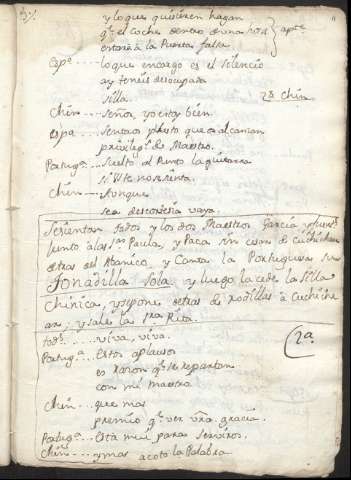 y lo que quisieren hagan
qe. el coche dentro de una hora } apte
entrará la Puerta falsa
Espe.... lo que encargo es el silencio
ay teneis desocupada
silla. 2a Chin
Chin.... Señor, yo estoy bien.
Espa.... sentaos, puesto que alcanzan
privilegs. de Maestro.
Portugs... suelto al Punto la guitarra
si Vste no se sienta.
Chin.... Aunque
sea descortesia vaya.
Sesientan todos y los dos Maestros Garcia y
Junto a las Sas Paula, y Paca sin cesar de Cuchichear
detras del Abanico y Canta la Portuguesa su
Tonadilla Sola, y luego la cede la Silla
Chinica, y sepone detras de rodillas à Cuchiche
ar; y sale la Sra Rita.
tods.... viva, viva. (2a
Portugs... Estos aplausos
es razon qe. se repartan
con mi Maestro
Chin... que mas
premio qe. ver vra. gracia.
Portugs... Está mui para serviros.
Chin.... y mas acoto la Palabra